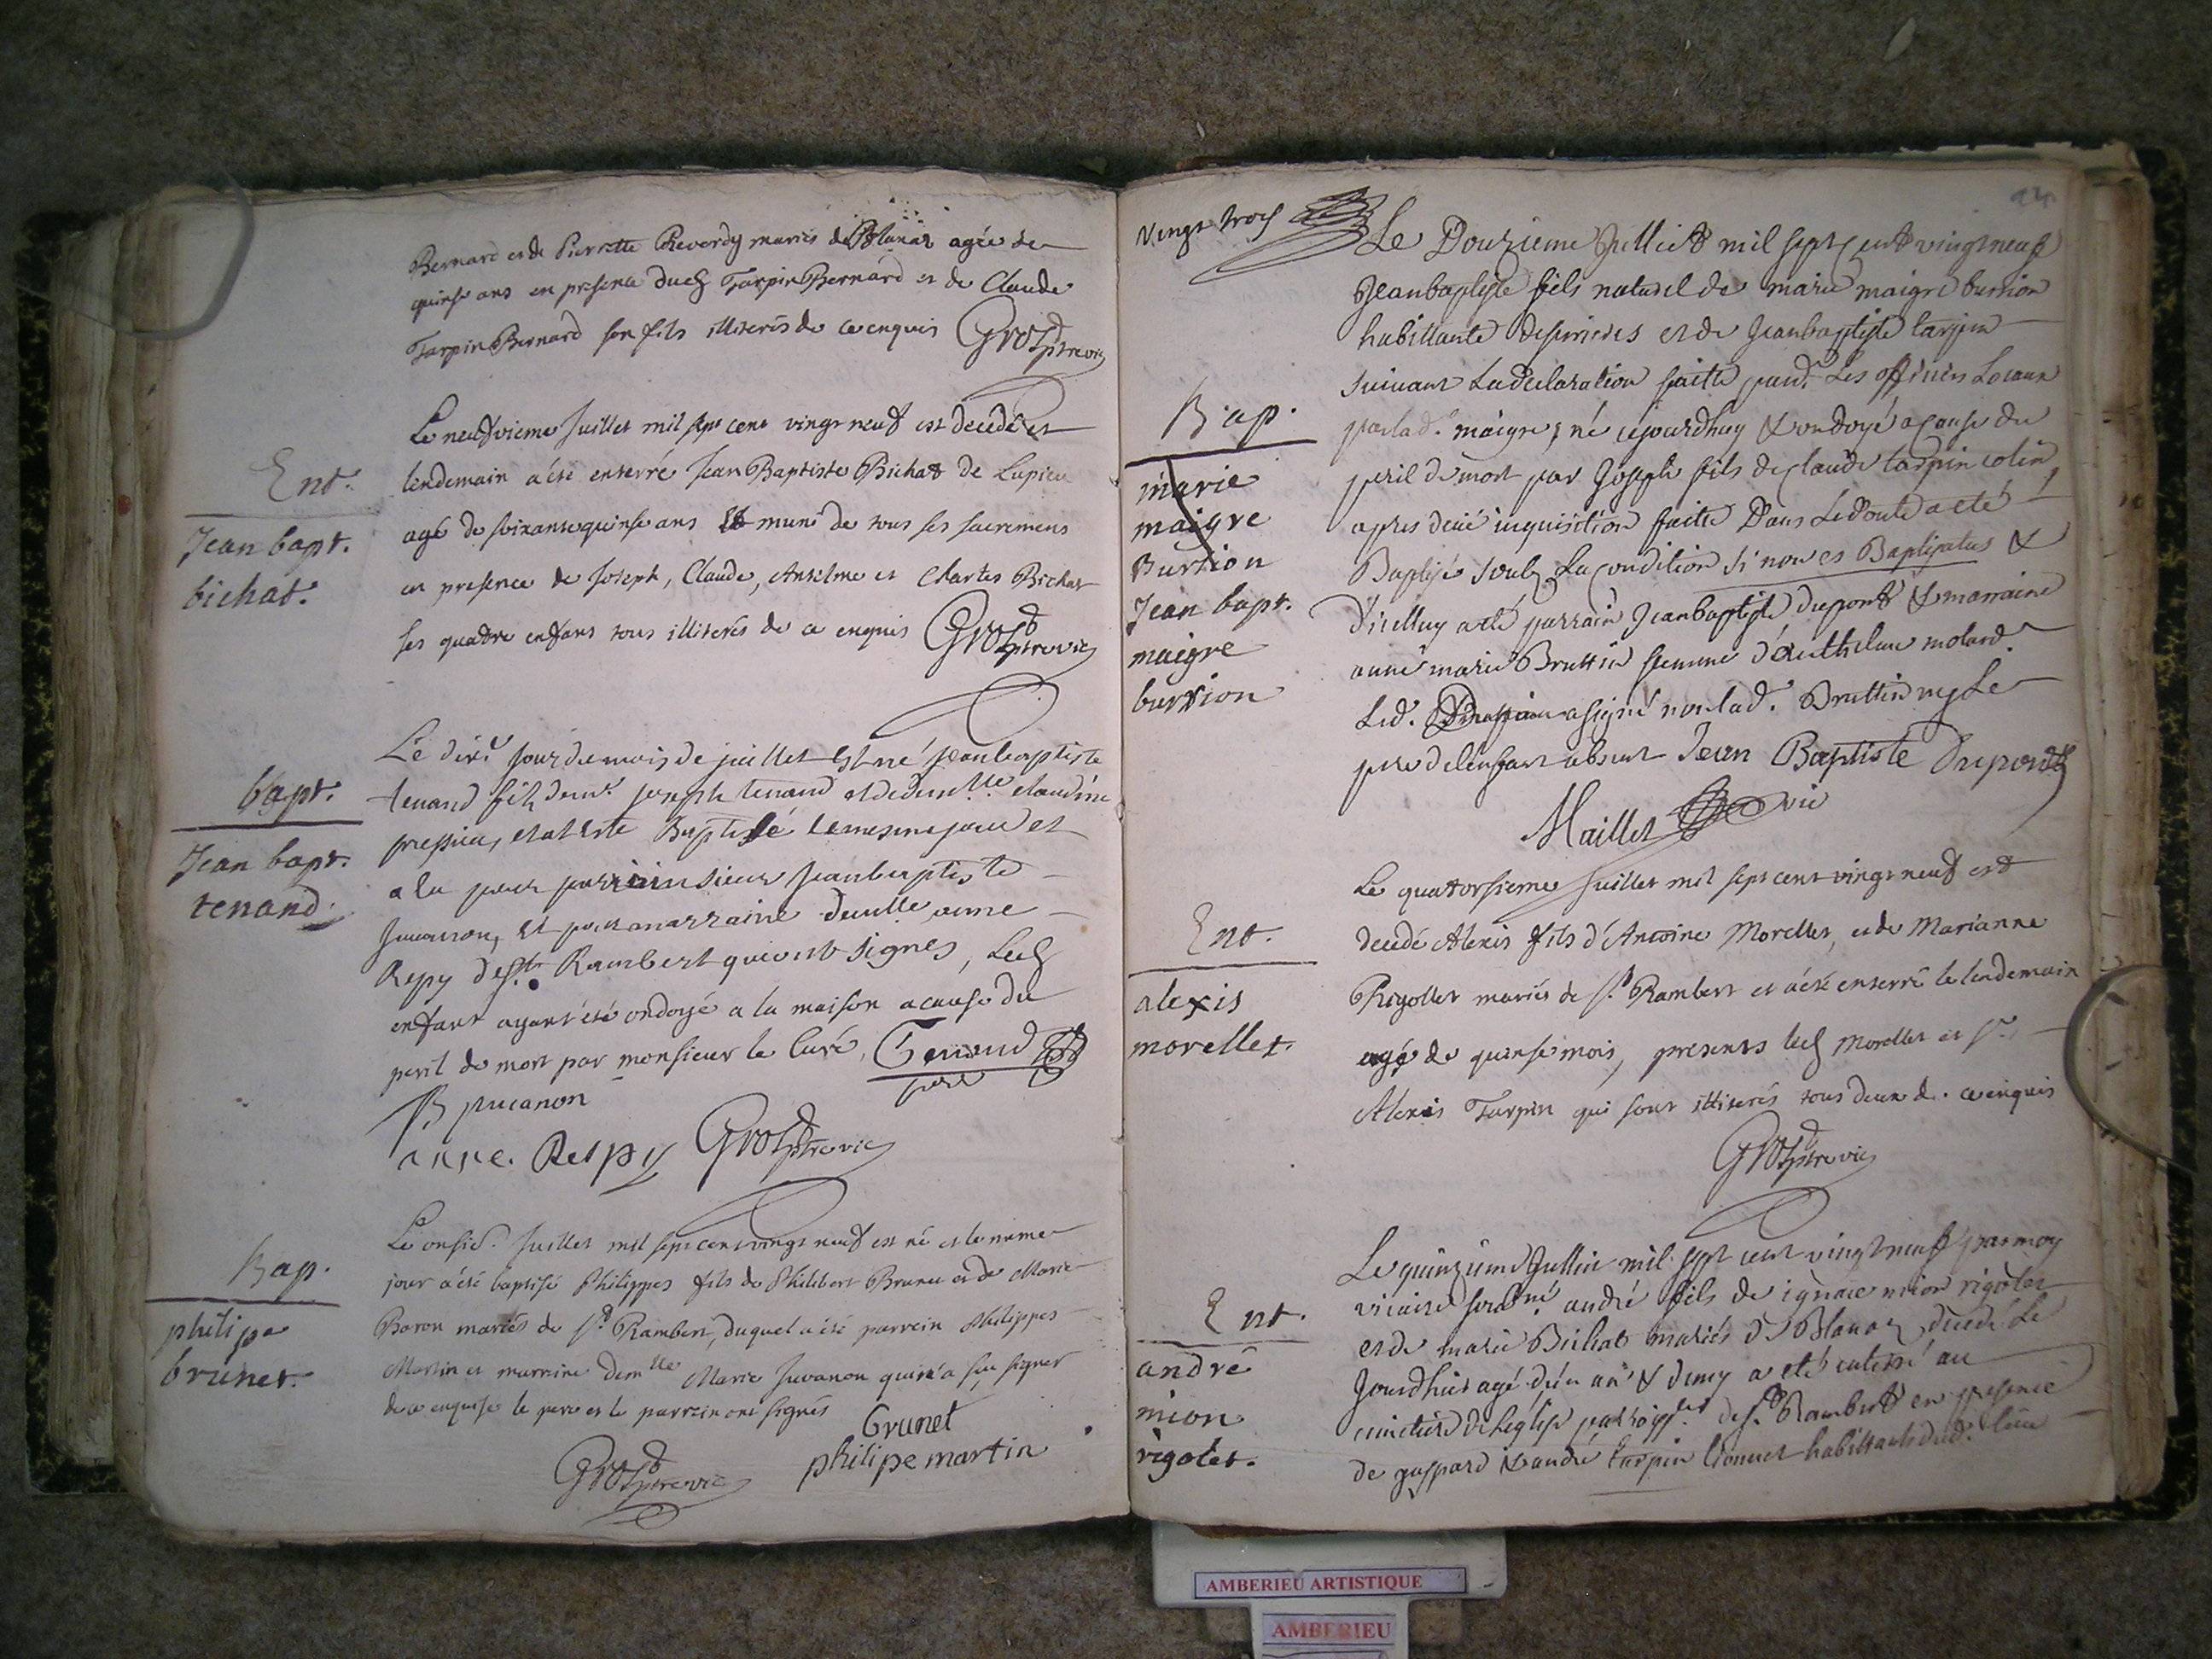 Bernard et de Pierrette Reverdy mariés de Blanaz agée de
quinse ans en presence dud. Tarpin Bernard et de Claude
Tarpin Bernard son fils illiterés de ce enquis Grosd ptre vic
Ent.
Jean bapt.
bichat.
Le neufvieme Juillet mil sept cens vingt neuf est decedé et
lendemain a été enterré Jean Baptiste Bichat de Lupieu
agé de soixante quinse ans et muni de tous ses sacremens
en presence de Joseph, Claude, Anselme et Charles Bichat
ses quattre enfans tous illiterés de ce enquis Grosd ptre vic
bapt.
Jean bapt.
tenand.
Le dix.e jour du mois de juillet est né jean baptiste
tenand fils de mr. joseph tenand et de demlle. claudine
et at este Baptisé le mesme jour et
a lu pour parrain sieur jean baptiste
Juvanon, et pour marraine demlle anne
Repy de st. Rambert qui ont signes, led.
enfant ayant été ondoyé a la maison a cause du
peril de mort par monsieur le Curé, Tenand
pere
B juvanon
anne. Respy Grosd ptre vic
Bap.
philipe
brunet.
Le onsie. Juillet mil sept cens vingt neuf est né et le meme
jour a été baptisé Philippes fils de Philibert Brunet et de Marie
Baron mariés de St. Rambert, duquel a été parrein Philippes
Martin et marreine demlle Marie Juvanon qui n'a sçu signer
de ce enquise le pere et le parrein ont signés
Brunet
Grosd ptre vic philipe martin
vingt trois
Bap.
marie
maigre
Burtion
Jean bapt.
maigre
burtion
Le Douzieme Julliet mil sept cent vingt neuf
Jean baptiste fils naturel de marie maigre burtion
habittante et de Jean baptiste tarpin
suivant la declaration faitte pard. les officiers Locaux
par lad. maigre, né cejourdhuy & ondoyé a cause du
peril de mort par Joseph fils de claude tarpin colin
apres deüe inquisition faitte Dans le doute a eté
Baptisé soub la condition si non es Baptizatus &
d'icelluy a eté parrain Jean baptiste dupont & marraine
anne marie Bruttin femme d'Anthelme molard.
Led. a signé non lad. Bruttin ny le
pere de lenfant absent Jean Baptiste Dupont
Maillet vic
Ent.
alexis
morellet.
Le quatorsieme Juillet mil sept cent vingt neuf est
decedé Alexis fils d'Antoine Morellet, et de Marianne
Rigollet mariés de St. Rambert et a été enterré le lendemain
agé de quinse mois, presents led. Morellet et Sr.
Alexis Tarpin qui sont illiterés tous deux d. ce enquis
Grosd ptre vic
Ent.
andré
mion
rigolet.
Le quinzieme Jullier mil sept cent vingt neuf par moy
vicaire sousné. andré fils de ignace mion rigolet
et de marie Bichat mariés de Blanaz, decedé le
Jourdhier agé d'un an & demy a eté enterré au
cimetiere de l'eglise parroiss.lle de St. Rambert en presence
de gaspard & andré tarpin lionnet habittants dud. lieu
AMBERIEU ARTISTIQUE
AMBERIEU